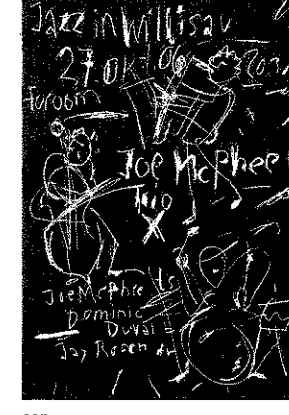 Jazz in Willisau
27 okt
Foroom
Joe McPhee
Trio
X
Joe McPhee ts
Dominic
Duval
Jay Rosen dr